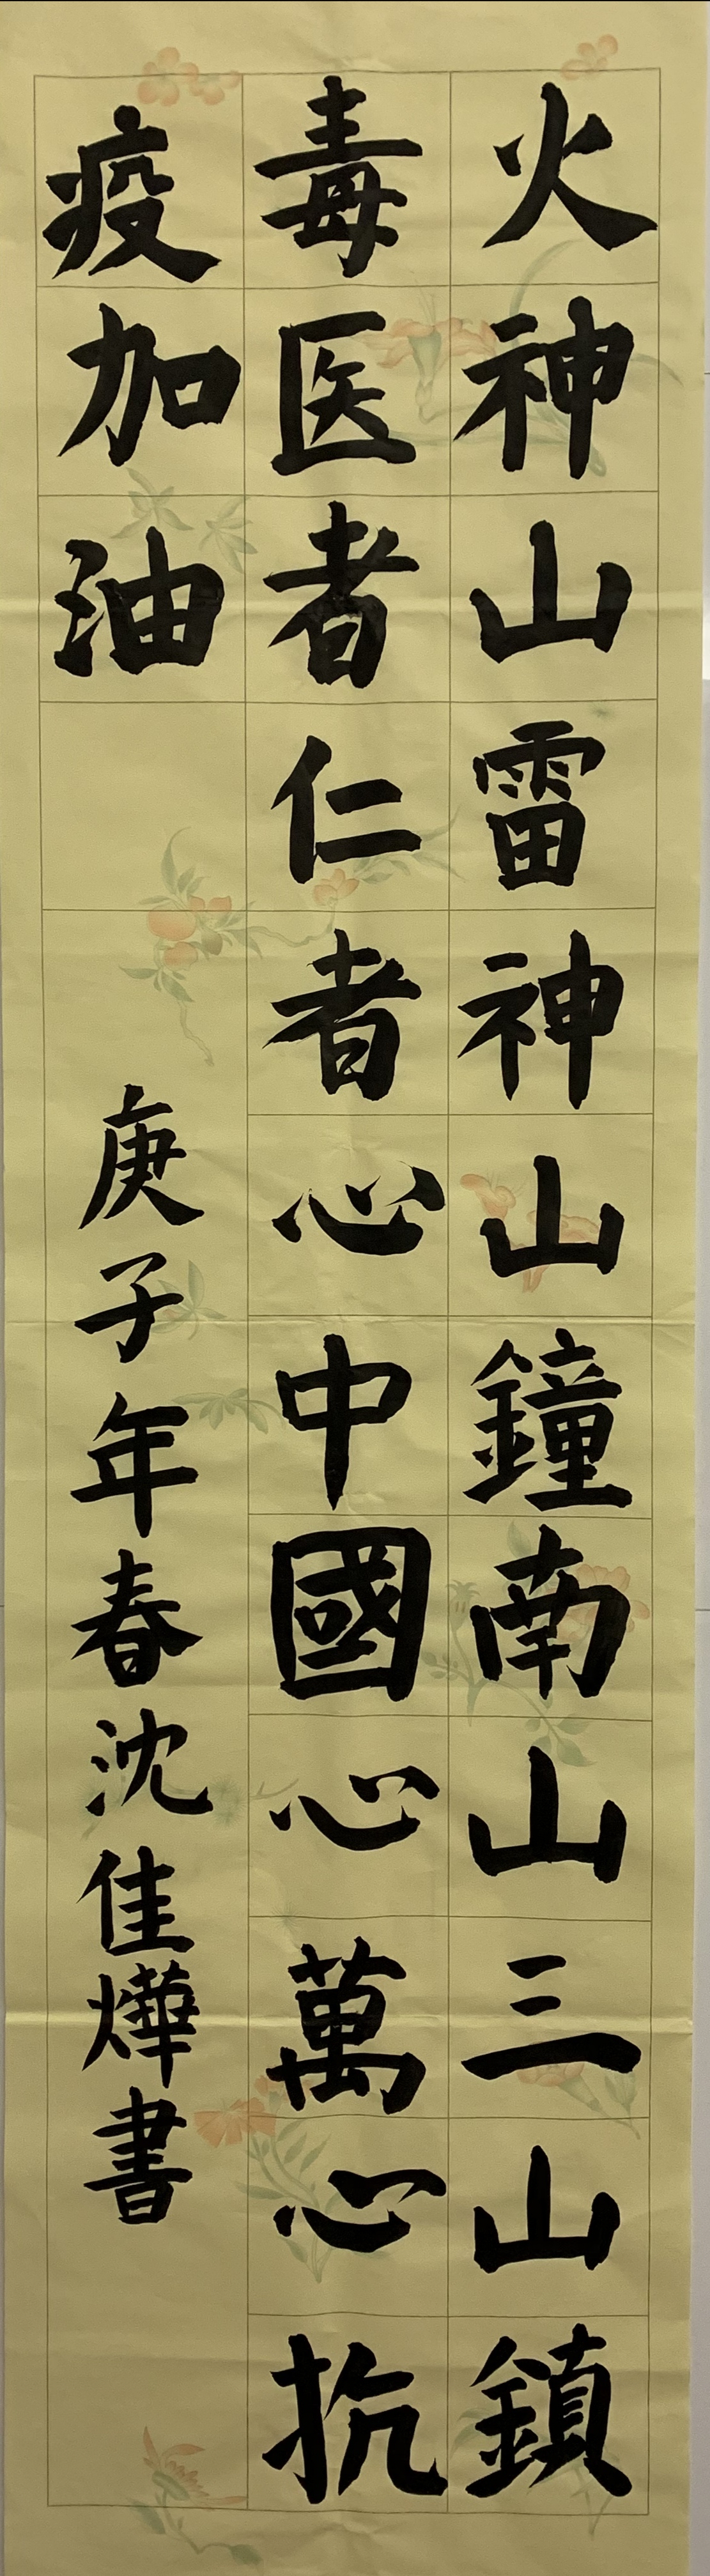 火神山雷神山鐘南山三山鎮
毒医者仁者心中國心萬心抗
疫加油
庚子年春沈佳燁書